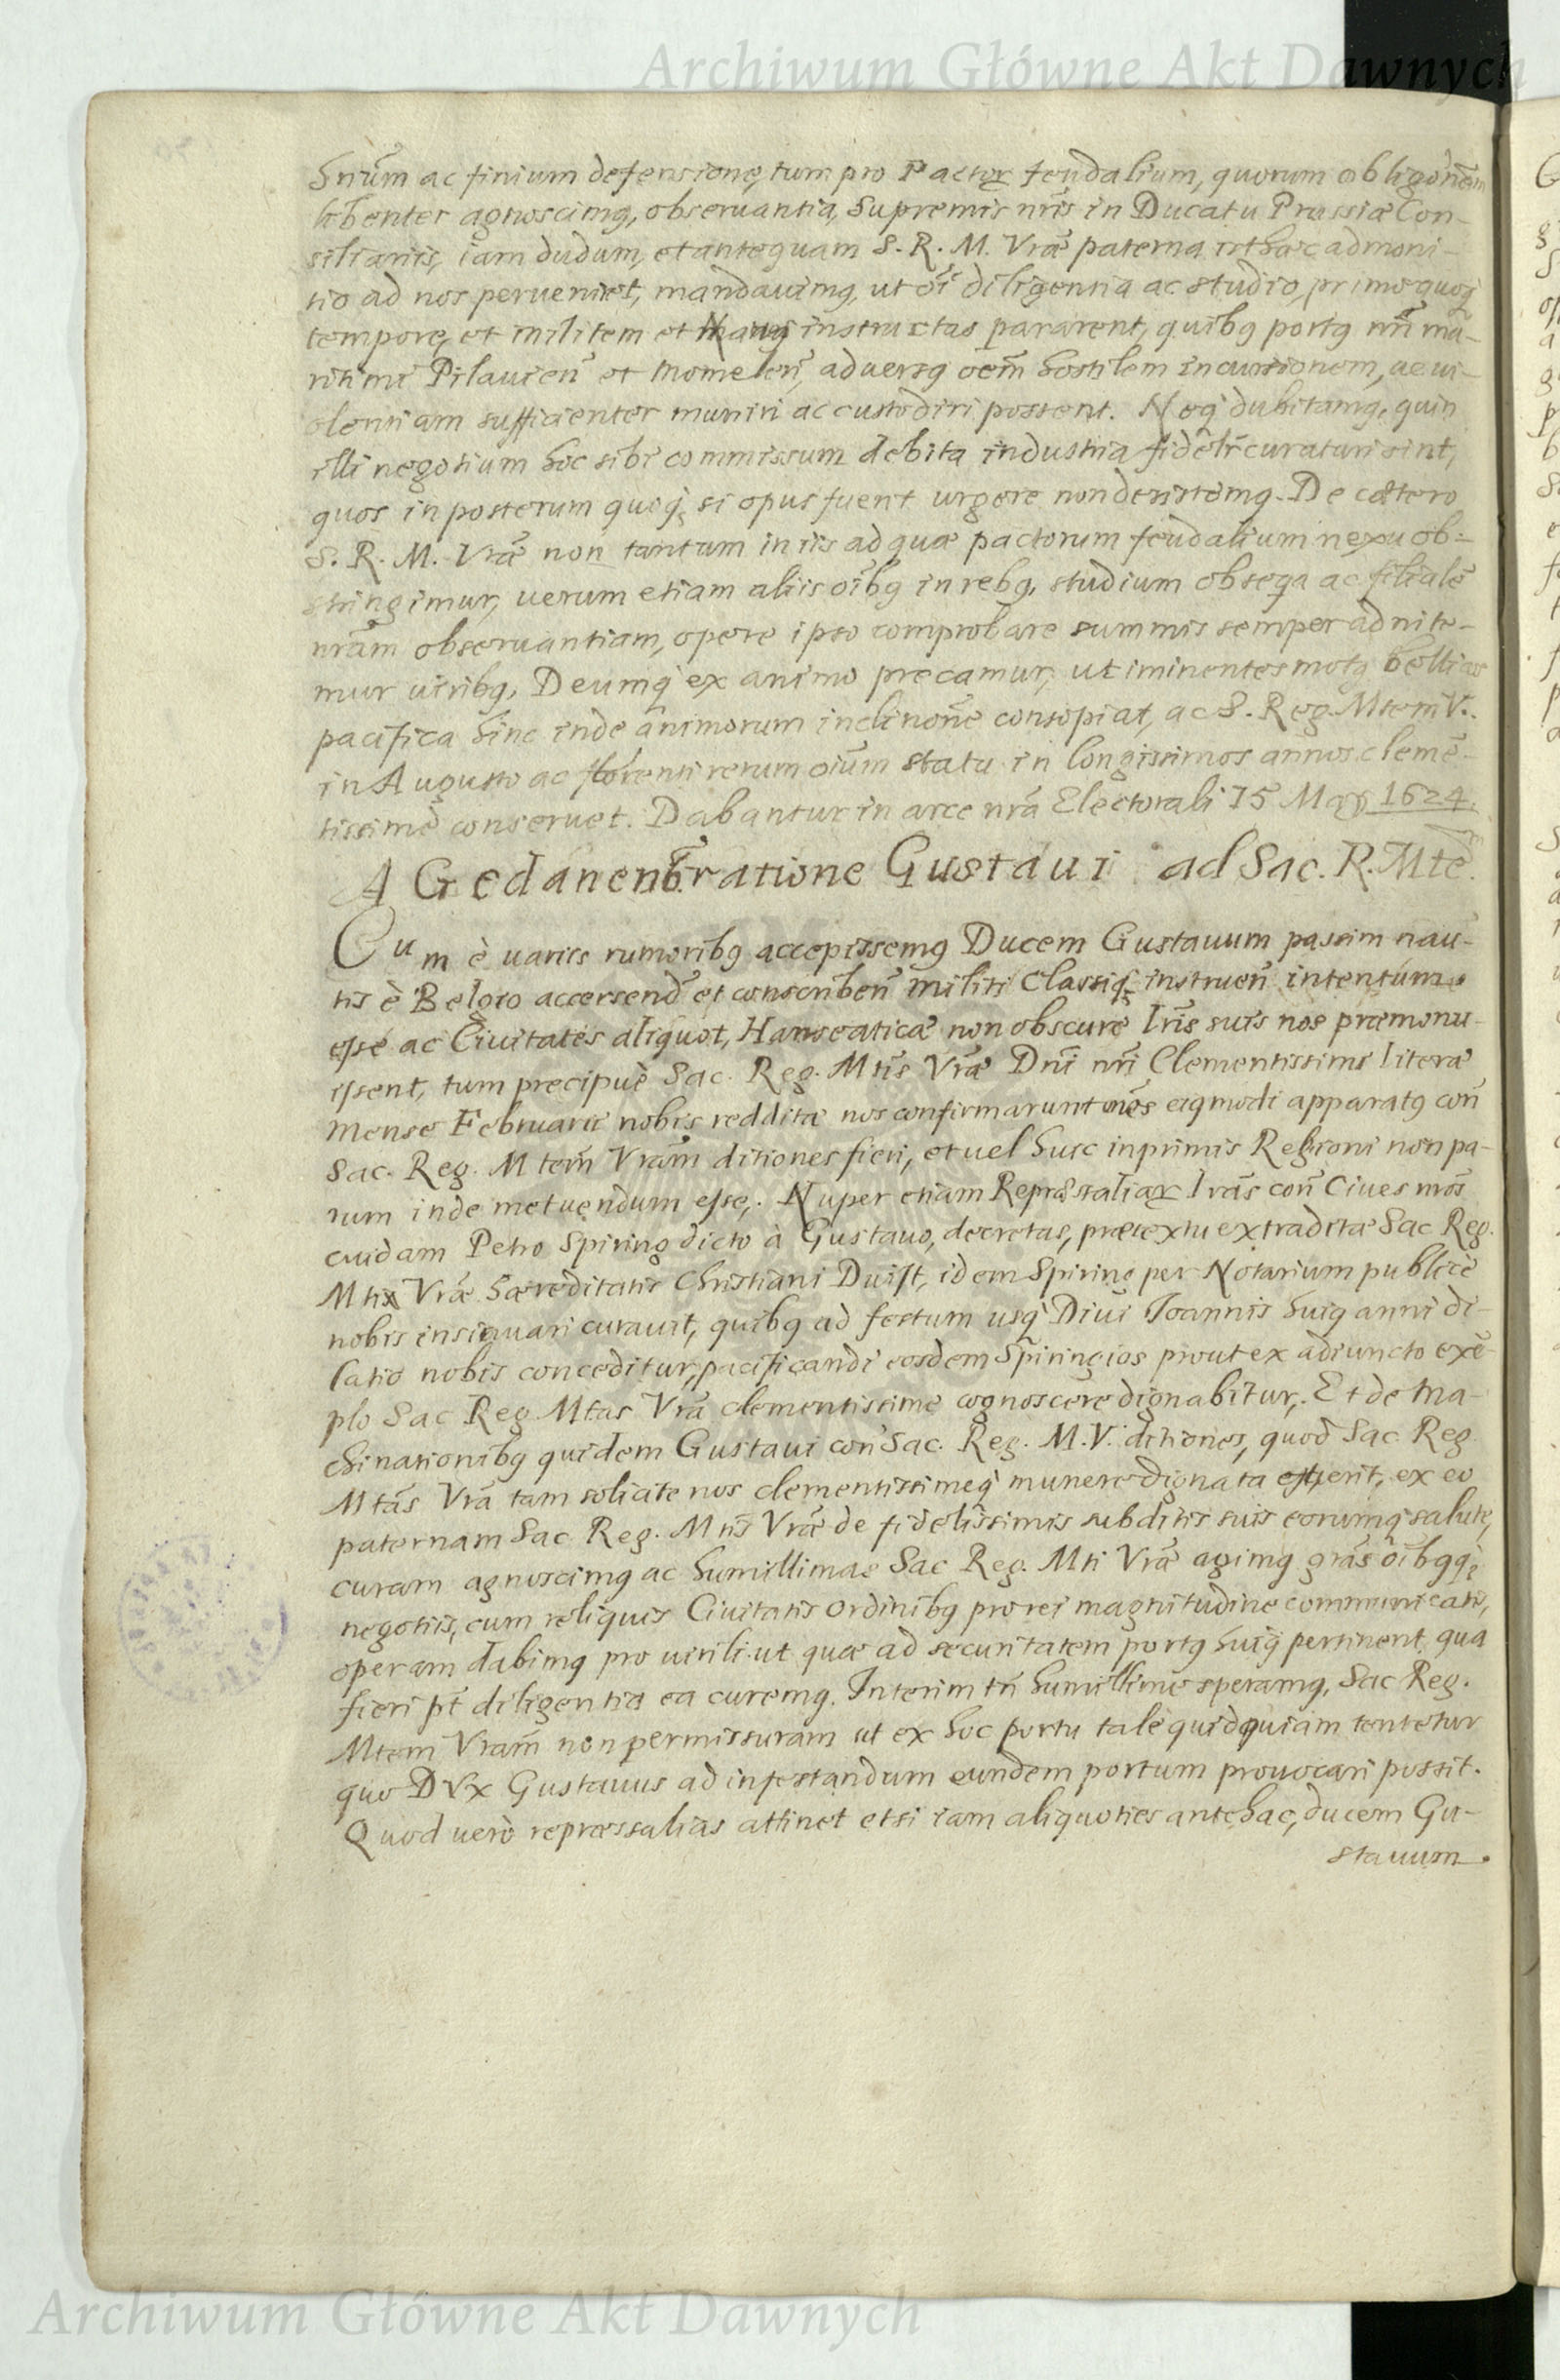 Archiwum Główne Akt Dawnych
Snūm ac finium defensione, tum pro Pactoꝝ feudalium, quorum obligōnem
libenter agnoscimꝰ, obseruantia, Supremis nr̃is in Ducatu Prussiæ Con-
siliariis, iam dudum, et antequam S. R. M. Vræ paterna isthæc admoni-
tio ad nos perueniret, mandauimꝰ, ut oĩ diligentia ac studio, primo quoq̃
tempore, et militem et naues instructas pararent, quibꝰ portꝰ nr̃i ma-
ritimi Pilauien̄ et Momelen̄, aduersꝰ oēm hostilem incursionem, ac ui-
olentiam sufficienter muniri ac custodiri possent. Neq̃ dubitamꝰ, quin
illi negotium hoc sibi commissum debita industria fidelr̃ curaturi sint,
quos in posterum quoq̃, si opus fuerit urgere non desistemꝰ. De cætero
S. R. M. Vræ non tantum in iis ad quæ pactorum feudalium nexu ob-
stringimur, uerum etiam aliis oībꝰ in rebꝰ, studium obsequia ac filialē
nr̃am obseruantiam, opere ipso comprobare summis semper adnite-
mur uiribꝰ, Deumq̃ ex animo precamur, ut iminentes motꝰ bellicos
pacifica hinc inde animorum inclinōne consopiat, ac S. Reg. Mtem V.
in Augusto ac florenti rerum oīum statu in longissimos annos clemē-
tissimè conseruet. Dabantur in arce nr̃a Electorali 15 Maÿ 1624.
A Gedanenb. ratione Gustaui ad Sac. R. Mtē.
Cum è uariis rumoribꝰ accepissemꝰ Ducem Gustauum passim nau-
tis è Belgio accersend̄ et conscriben̄ militi Classiq̃ instruen̄ intentum
esse ac Ciuitates aliquot, Hanseaticæ non obscurè lr̃is suis nos præmonu-
issent, tum precipuè Sac. Reg. Mtis Vræ Dn̄i nr̃i Clementissimi literæ
mense Februarii nobis redditæ nos confirmarunt eiꝰmodi apparatꝰ con̄
Sac. Reg. Mtem̄ Vram̄ ditiones fieri, et uel huic inprimis Regioni non pa-
rum inde metuendum esse. Nuper etiam Repræssaliaꝝ lr̃as con̄ Ciues nr̃os
cuidam Petro Spiring dicto à Gustauo, decretas, prætextu extraditæ Sac Reg.
Mtis Vræ hæreditatis Christiani Duist, idem Spiring per Notarium publicè
nobis insinuari curauit, quibꝰ ad festum usq̃ Diui Joannis huiꝰ anni di-
latio nobis conceditur, pacificandi eosdem Spiringios prout ex adiuncto exē-
plo Sac Reg Mtas Vr̃a clementissime cognoscere dignabitur. Et de ma-
chinationibꝰ quidem Gustaui con̄ Sac. Reg. M. V. ditiones, quod Sac Reg
Mtas Vr̃a tam solicite nos clementissimeq̃ munere dignata erit, ex eo
paternam Sac Reg. Mtis Vræ de fidelissimis subditis suis eorumq̃ salute,
curam agnoscimꝰ ac humillimas Sac Reg. Mti Vræ agimꝰ grãs oībꝰq̃
negotiis, cum reliquis Ciuitatis ordinibꝰ pro rei magnitudine communicatis,
operam dabimꝰ pro uirili ut quæ ad securitatem portꝰ huiꝰ pertinent, qua
fieri pt̄ diligentia ea curemꝰ. Interim tn̄ humillime speramꝰ, Sac Reg.
Mtem Vram̄ non permissuram ut ex hoc portu tale quidquiam tentetur
quo DVx Gustauus ad infestandum eundem portum prouocari possit.
Quod uerò repræssalias attinet etsi iam aliquoties antehac, ducem Gu-
stauum.
Archiwum Główne Akt Dawnych